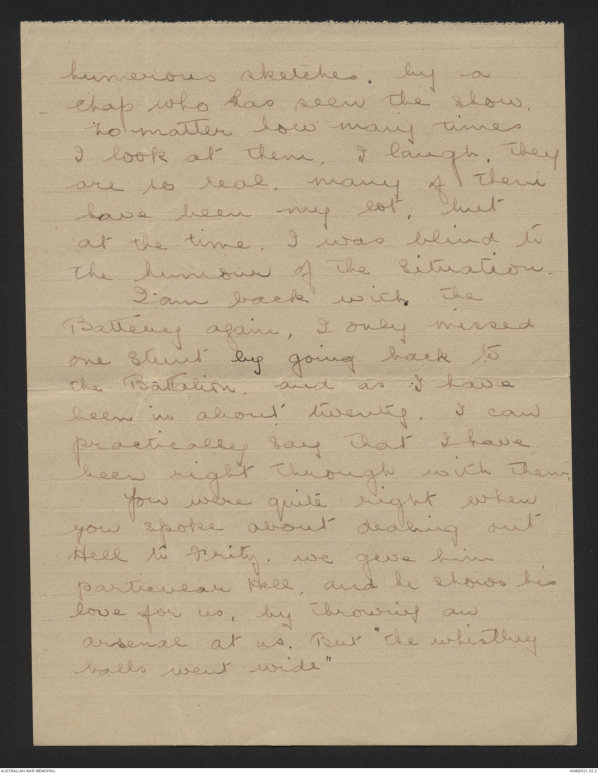 humerous sketches. by a
chap who has seen the show.
no matter how many times
I look at them, I laugh. They
are so real. many of them
have been my lot, but
at the time. I was blind to
the humour of the situation.
I am back with the
Battery again, I only missed
one stunt by going back to
the Battalion. and as I have
been in about twenty. I can
practically say that I have
been right through with them.
You were quite right when
you spoke about dealing out
Hell to Fritz. we gave him
particular Hell, and he shows his
love for us, by throwing an
arsenal at us. But "the whistling
balls went wide"
AUSTRALIAN WAR MEMORIAL